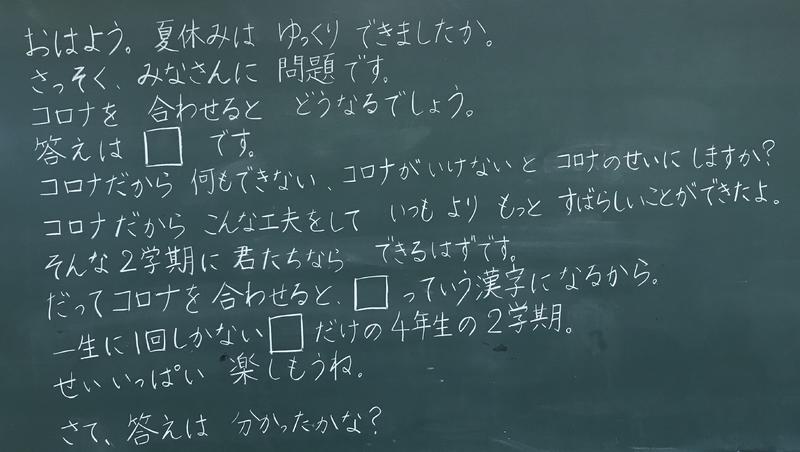 おはよう。夏休みは ゆっくり できましたか。
さっそく、みなさんに 問題です。
コロナを 合わせると どうなるでしょう。
答えは □ です。
コロナだから 何もできない、コロナがいけないと コロナのせいに しますか?
コロナだから こんな工夫をして いつも より もっと すばらしいことができたよ。
そんな2学期に 君たちなら できるはずです。
だってコロナを 合わせると、□っていう漢字になるから。
一生に1回しかない□だけの4年生の2学期。
せいいっぱい 楽しもうね。
さて、答えは 分かったかな?